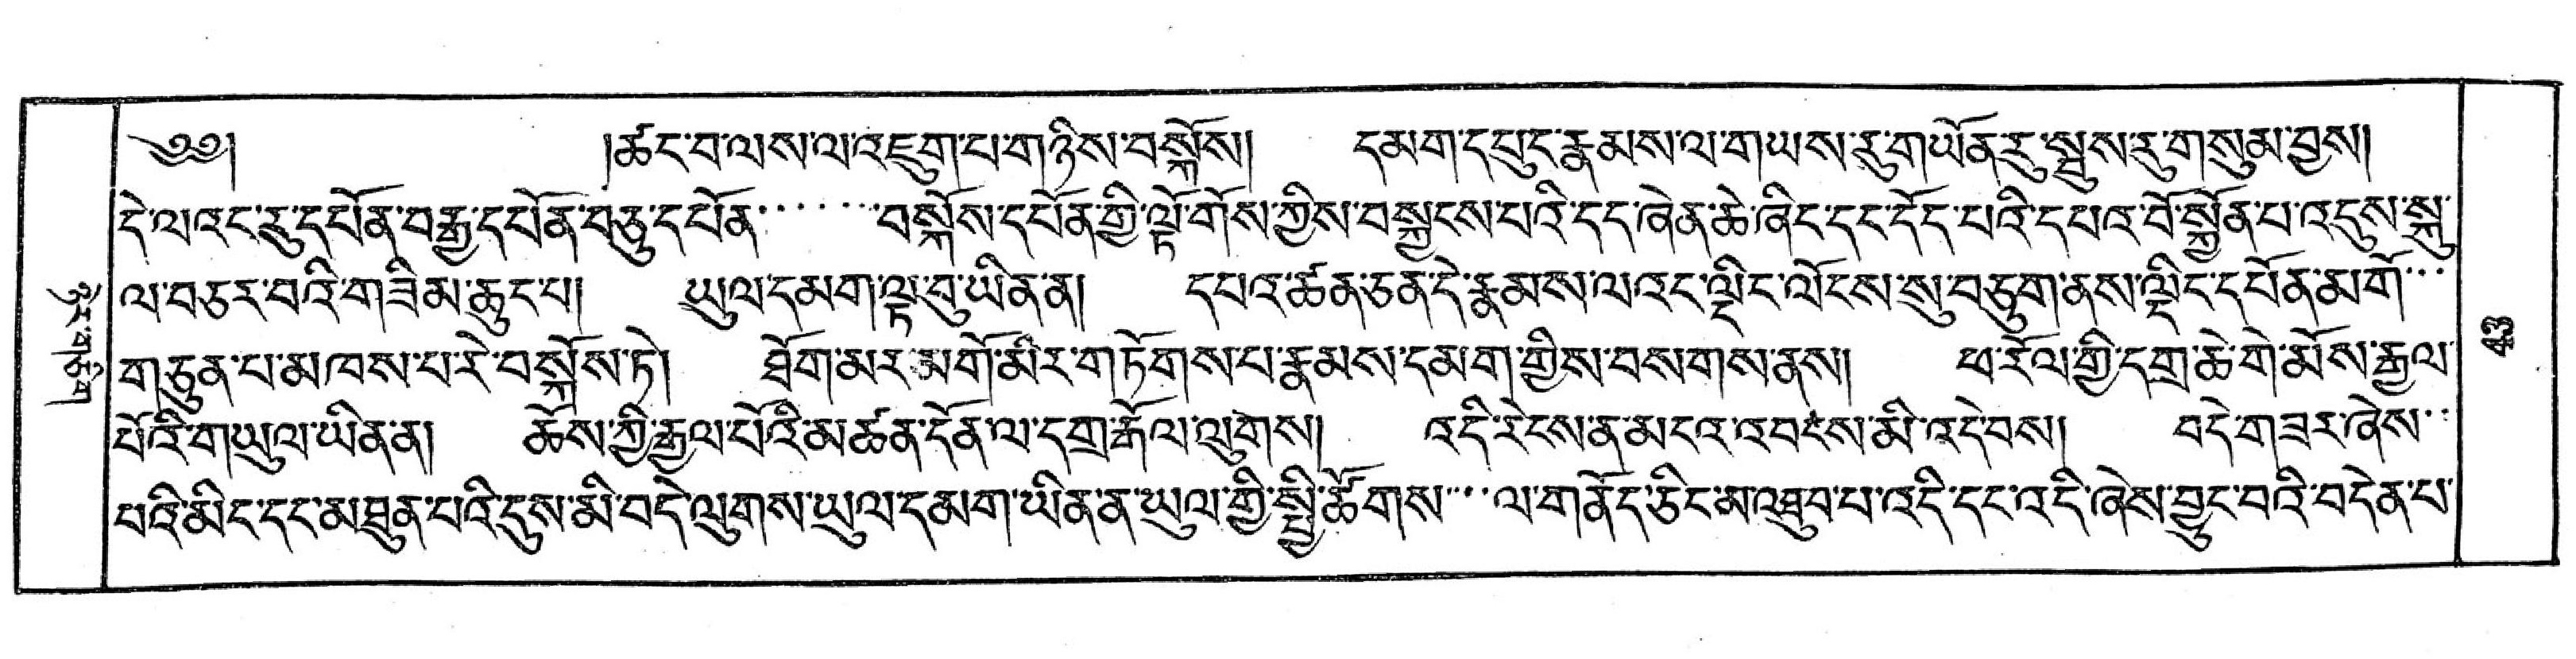 ༄༅། །ཚང་བ་ལས་ལ་འཇུག་པ་གཉིས་བསྐོས། དམག་དཔུང་རྣམས་ལ་གཡས་རུ་གཡོན་རུ་སྦུས་རུ་གསུམ་བྱས།
དེ་ལ་འང་རུ་དཔོན་བརྒྱ་དཔོན་བཅུ་དཔོན་་་་་་་བསྐོས་དཔོན་གྱི་ལྟོ་གོས་ཀྱིས་བསྐྱངས་པའི་དད་ཞེན་ཆེ་ཞིང་དང་དོད་པའི་དཔའ་བོ་སྐྱོན་པ་འདུས་སྐུ་
ལ་བཅར་བའི་གཟིམ་ཆུང་པ། ཡུལ་དམག་ལྟ་བུ་ཡིན་ན། དཔའ་ཚན་ཅན་དེ་རྣམས་ལ་འང་ལྡིང་ལོངས་སུ་བཅུག་ནས་ལྡིང་དཔོན་མགོ་་་
གཅུན་པ་མཁས་པ་རེ་བསྐོས་ཏེ། ཐོག་མར་མགོ་མིར་གཏོགས་པ་རྣམས་དམག་གྱིས་བསགས་ནས། ཕ་རོལ་གྱི་དགྲ་ཆེ་གེ་མོས་རྒྱལ་
པོའི་གཡུལ་ཡིན་ན། ཆོས་ཀྱི་རྒྱལ་པོའི་མཚན་དོན་ལ་དགྲ་རྒོལ་ལུགས། འདི་རེངས་ན་མངའ་འབངས་མི་འདེབས། བདེ་གཟར་ཞེས་་
པའི་མིང་དང་མཐུན་པའི་དུས་མི་བདེ་ལུགས་ཡུལ་དམག་ཡིན་ན་ཡུལ་གྱི་སྤྱི་ཚོགས་་་ལ་གནོད་ཅིང་མ་ཐུབ་པ་འདི་དང་འདི་ཞེས་བྱུང་བའི་བདེན་པ་